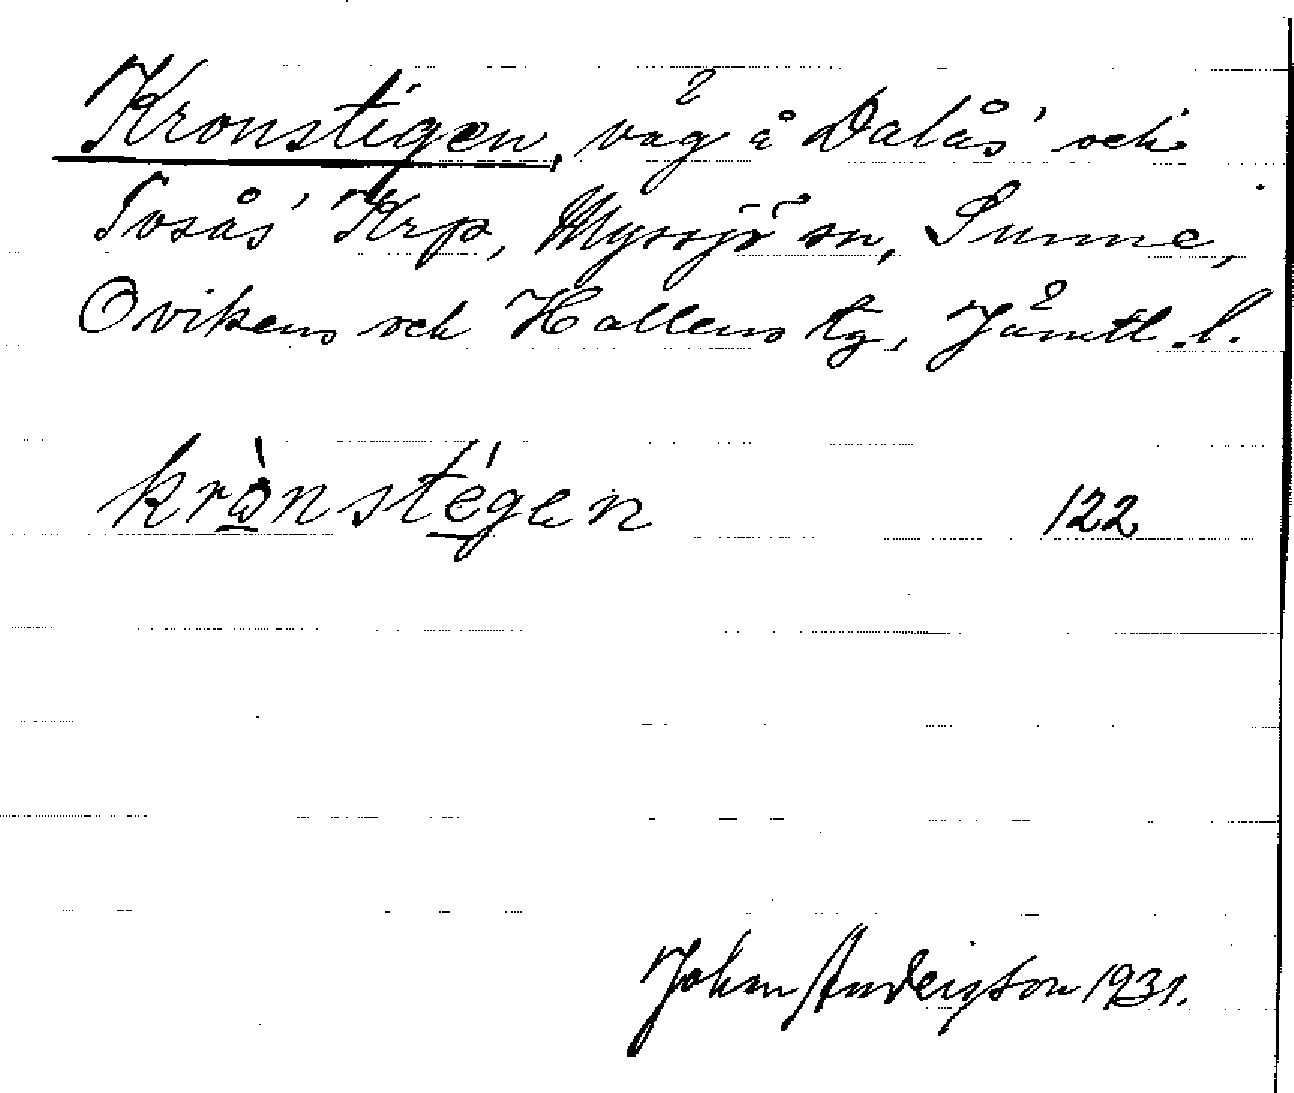 Kronstigen, väg å Dalås' och
Svsås' Krp, Myssjö sn, Sunne,
Ovikens och Hallens tg, Jämtl. l.
krònstégen 122
Johan Anderson 1931.